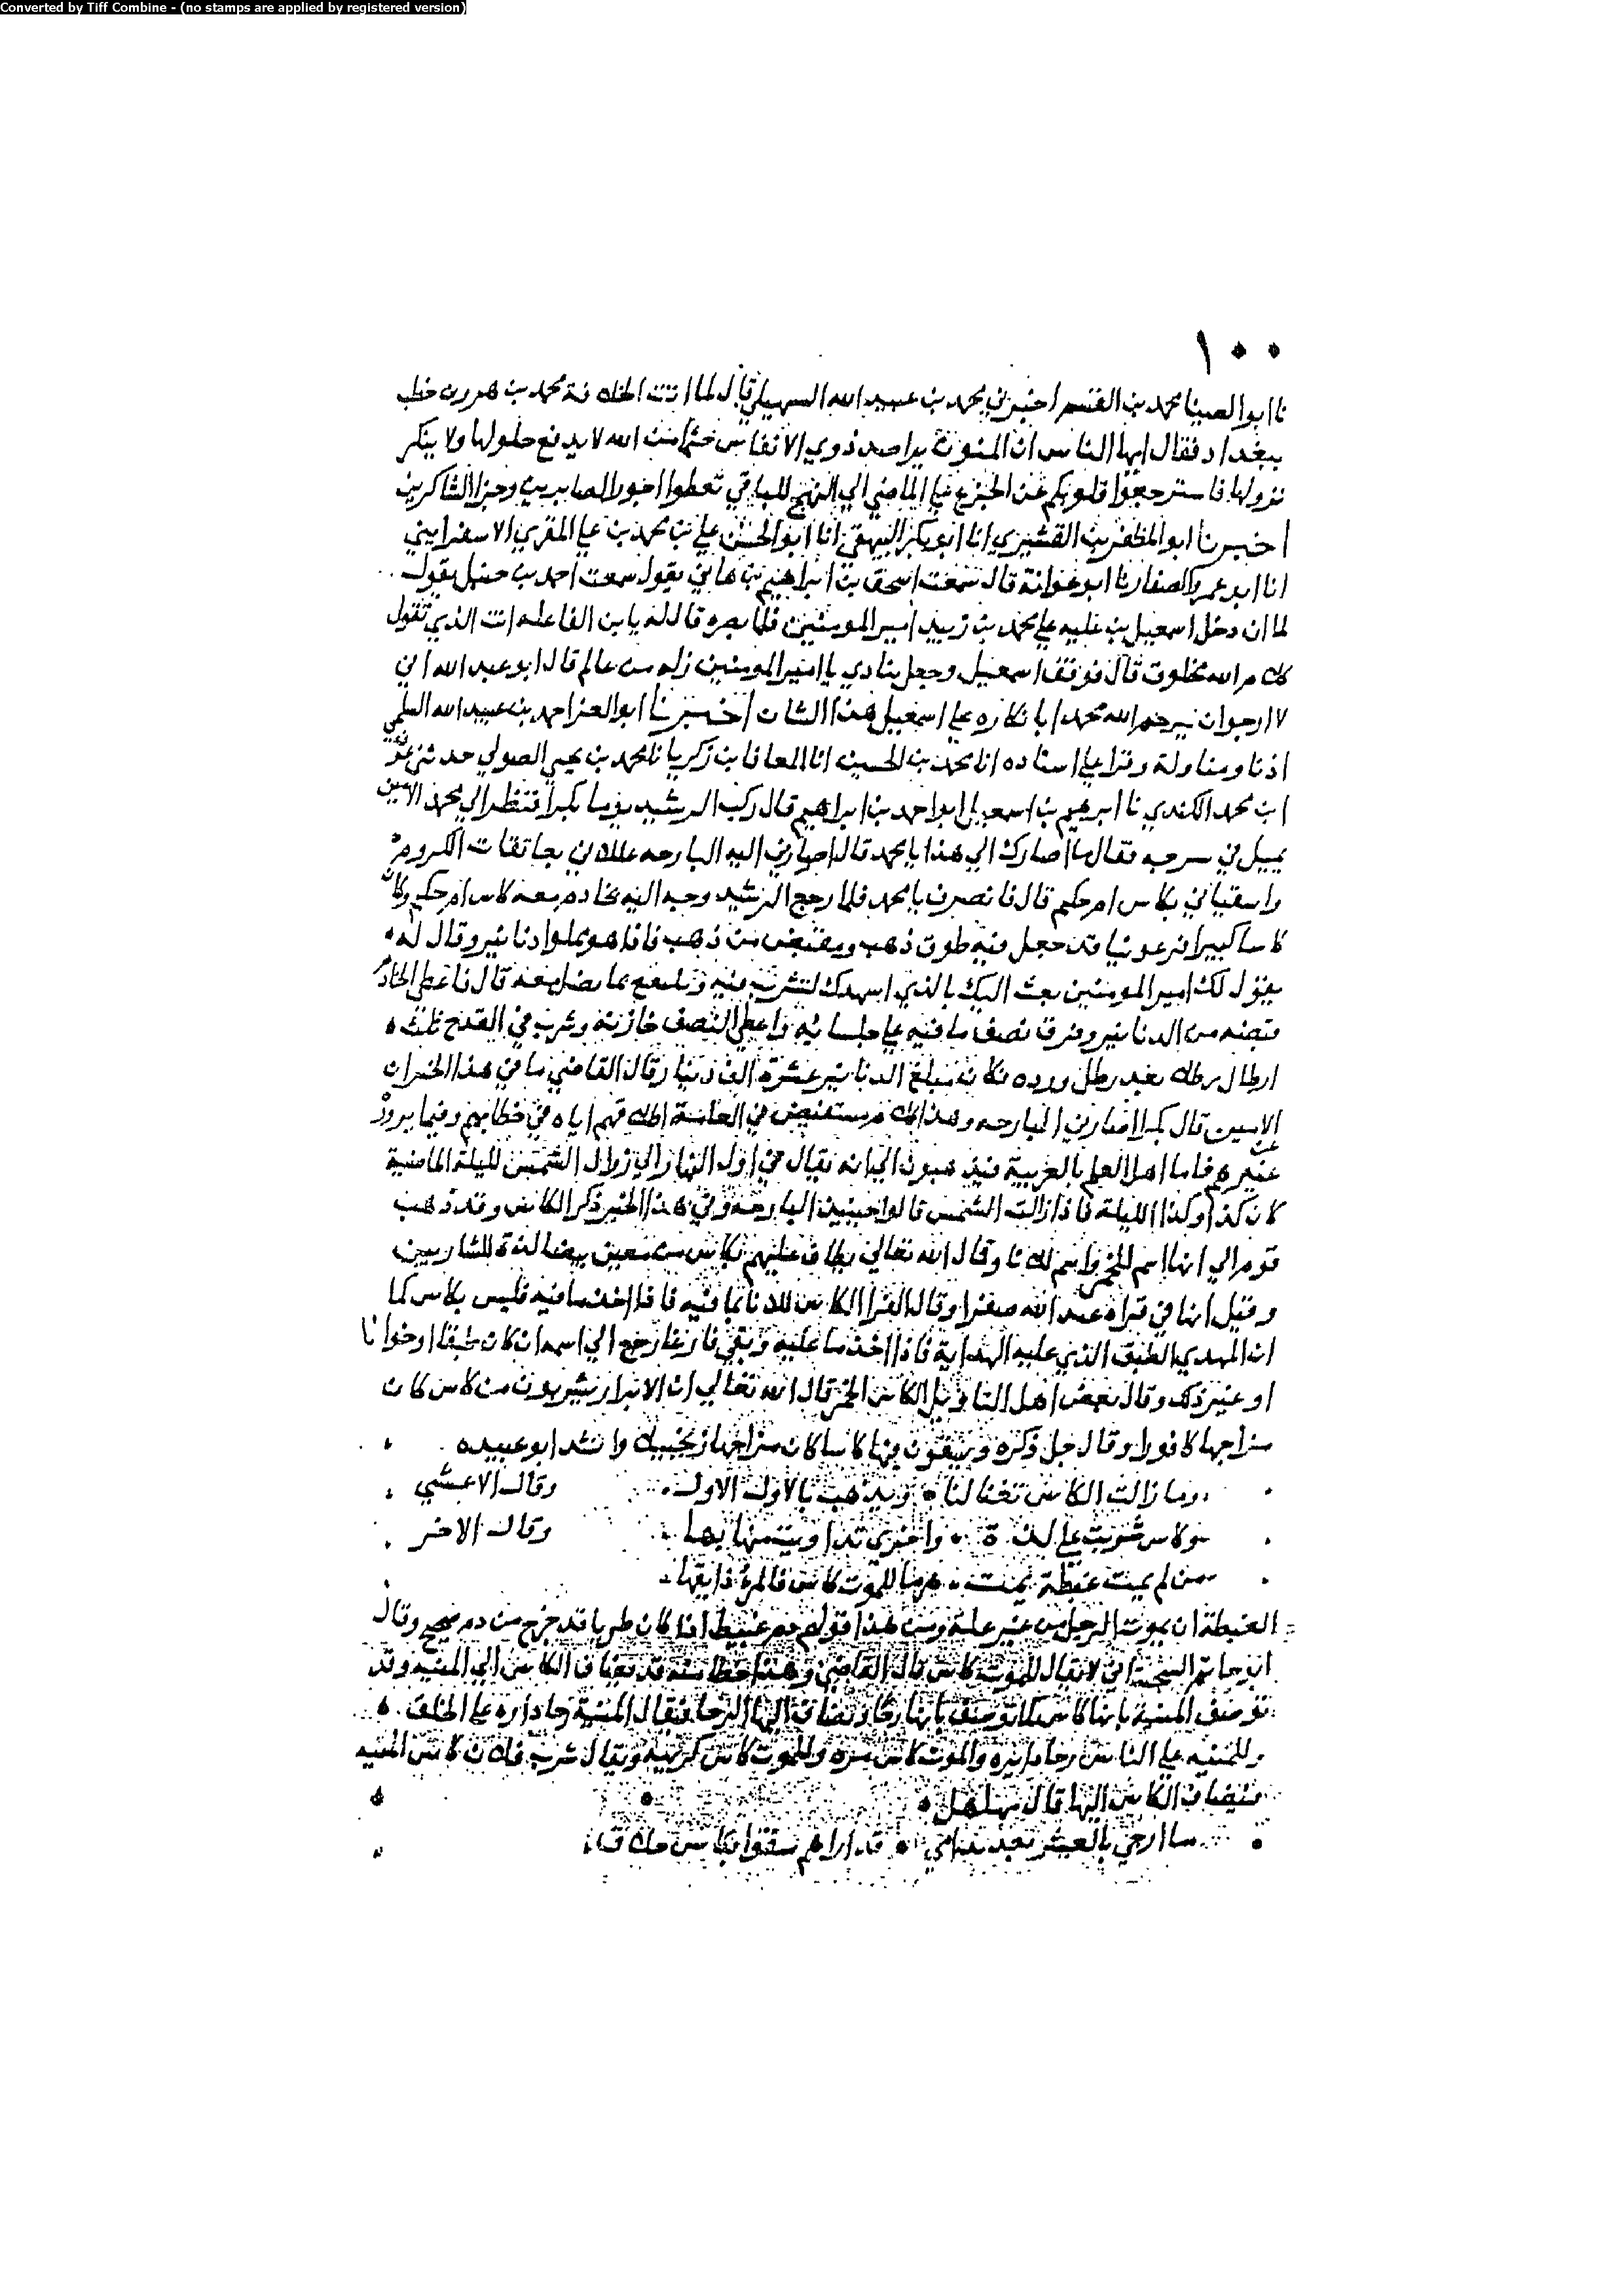 Converted by Tiff Combine - (no stamps are applied by registered version)
١٠٠
نا ابو العينا محمد بن القسم اخبرني محمد بن عبيد الله السهيلي قال لما اتت الخلافة محمد بن هرون خطب
ببغداد فقال ايها الناس ان المنون بمراصد ذوي الانفاس حتما من الله لا يدفع حلولها ولا ينكر
نزولها فاسترجعوا قلوبكم عن الجزع علي الماضي الي البهج للباقي تعطوا اجور الصابرين وجزا الشاكرين
اخبرنا ابو المظفر بن القشيري انا ابو بكر البيهقي انا ابو الحسن علي بن محمد بن علي المقري الاسفراييني
انا ابو عمرو الصفار نا ابو عوانة قال سمعت اسحق بن ابراهيم بن هاني يقول سمعت احمد بن حنبل يقول
لما ان دخل اسمعيل بن علية علي محمد بن زبيد امير المومنين فلما بصره قال له يا بن الفاعله انت الذي تقول
كلام الله مخلوق قال فوقف اسمعيل وجعل ينادي يا امير المومنين زلة من عالم قال ابو عبد الله اني
لا ارجوا ان يرحم الله محمدا بانكاره علي اسمعيل هذا الشان اخبرنا ابو العز احمد بن عبيد الله السلمي
اذنا ومناولة وقرا علي اسناده انا محمد بن الحسين انا المعافا بن زكريا نا محمد بن يحيي الصولي حدثني عون
ابن محمد الكندي نا ابرهيم بن اسمعيل ابو احمد بن ابراهيم قال ركب الرشيد يوما بكرا فنظر الي محمد الامين
يميل في سرجه فقال ما اصارك الي هذا يا محمد قال اصارني اليه البارحه عللاني بعاتقات الكروم
واسقياني بكاس ام حكيم قال فانصرف يا محمد فلما رجع الرشيد وجه اليه بخادم معه كاس ام حكيم وكان
كاسا كبيرا فرعونيا قد جعل فيه طوق ذهب ومقبض من ذهب فاذا هو مملو دنانير وقال له
يقول لك امير المومنين بعث اليك بالذي اسهرك لتشرب فيه وتنتفع بما يصل معه قال فاعطي الخادم
قبضه من الدنانير وفرق نصف ما فيه علي جلسايه واعطي النصف خازنه وشرب في القدح ثلثه
ارطال رطلا بعد رطل ورده فكان مبلغ الدنانير عشرة الف دينار قال القاضي ما في هذا الخبر ان
الامين قال بكرا اصارني البارحه وهذا كلام مستفيض في العامة اطلاقهم اياه في خطابهم وفيما يروون عن
غيرهم فاما اهل العلم بالعربية فيذهبون الي انه يقال من اول النهار الي زوال الشمس لليلة الماضية
كان كذا وكذا الليلة فاذا زالت الشمس قالوا حينئذ البارحة وفي هذا الخبر ذكر الكاس وقد ذهب
قوم الي انها اسم للخمر واسم للانا وقال الله تعالي يطاف عليهم بكاس من معين بيضا لذة للشاربين
وقيل انها في قراة عبد الله صفرا وقال الفرا الكاس للانا بما فيه فاذا اخذ ما فيه فليس بكاس كما
ان المهدي الطبق الذي عليه الهداية فاذا اخذ ما عليه وبقي فارغا رجع الي اسمه ان كان طبقا او خوانا
او غير ذلك وقال بعض اهل التاويل الكاس الخمر قال الله تعالي ان الابرار يشربون من كاس كان
مزاجها كافورا وقال جل ذكره ويسقون فيها كاسا كان مزاجها زنجبيلا وانشد ابو عبيده
وما زالت الكاس تغتالنا وتذهب بالاول الاول وقال الاعشي
وكاس شربت علي لذة واخري تداويت منها بها وقال الاخر
من لم يمت عبطة يمت هرما للموت كاس فالمرء ذايقها
العبطة ان يموت الرجل من غير علة ومن هذا قولهم دم عبيط اذا كان طريا قد خرج من دم صحيح وقال
ابو حاتم السجستاني لا يقال للموت كاس قال القاضي وهذا خطا منه قد تضاف الكاس الي المنيه وقد
توصف المنية بانها كاس كما توصف بانها رحا وتضاف اليها الرحا فيقال المنية رحا دايره علي الخلق
وللمنيه علي الناس رحا مديره والموت كاس مره وللموت كاس كريهة ويقال شرب فلان كاس المنيه
فتضاف الكاس اليها قال مهلهل
ما ارجي بالعيش بعد نداماي قد اراهم سقوا بكاس حلاق